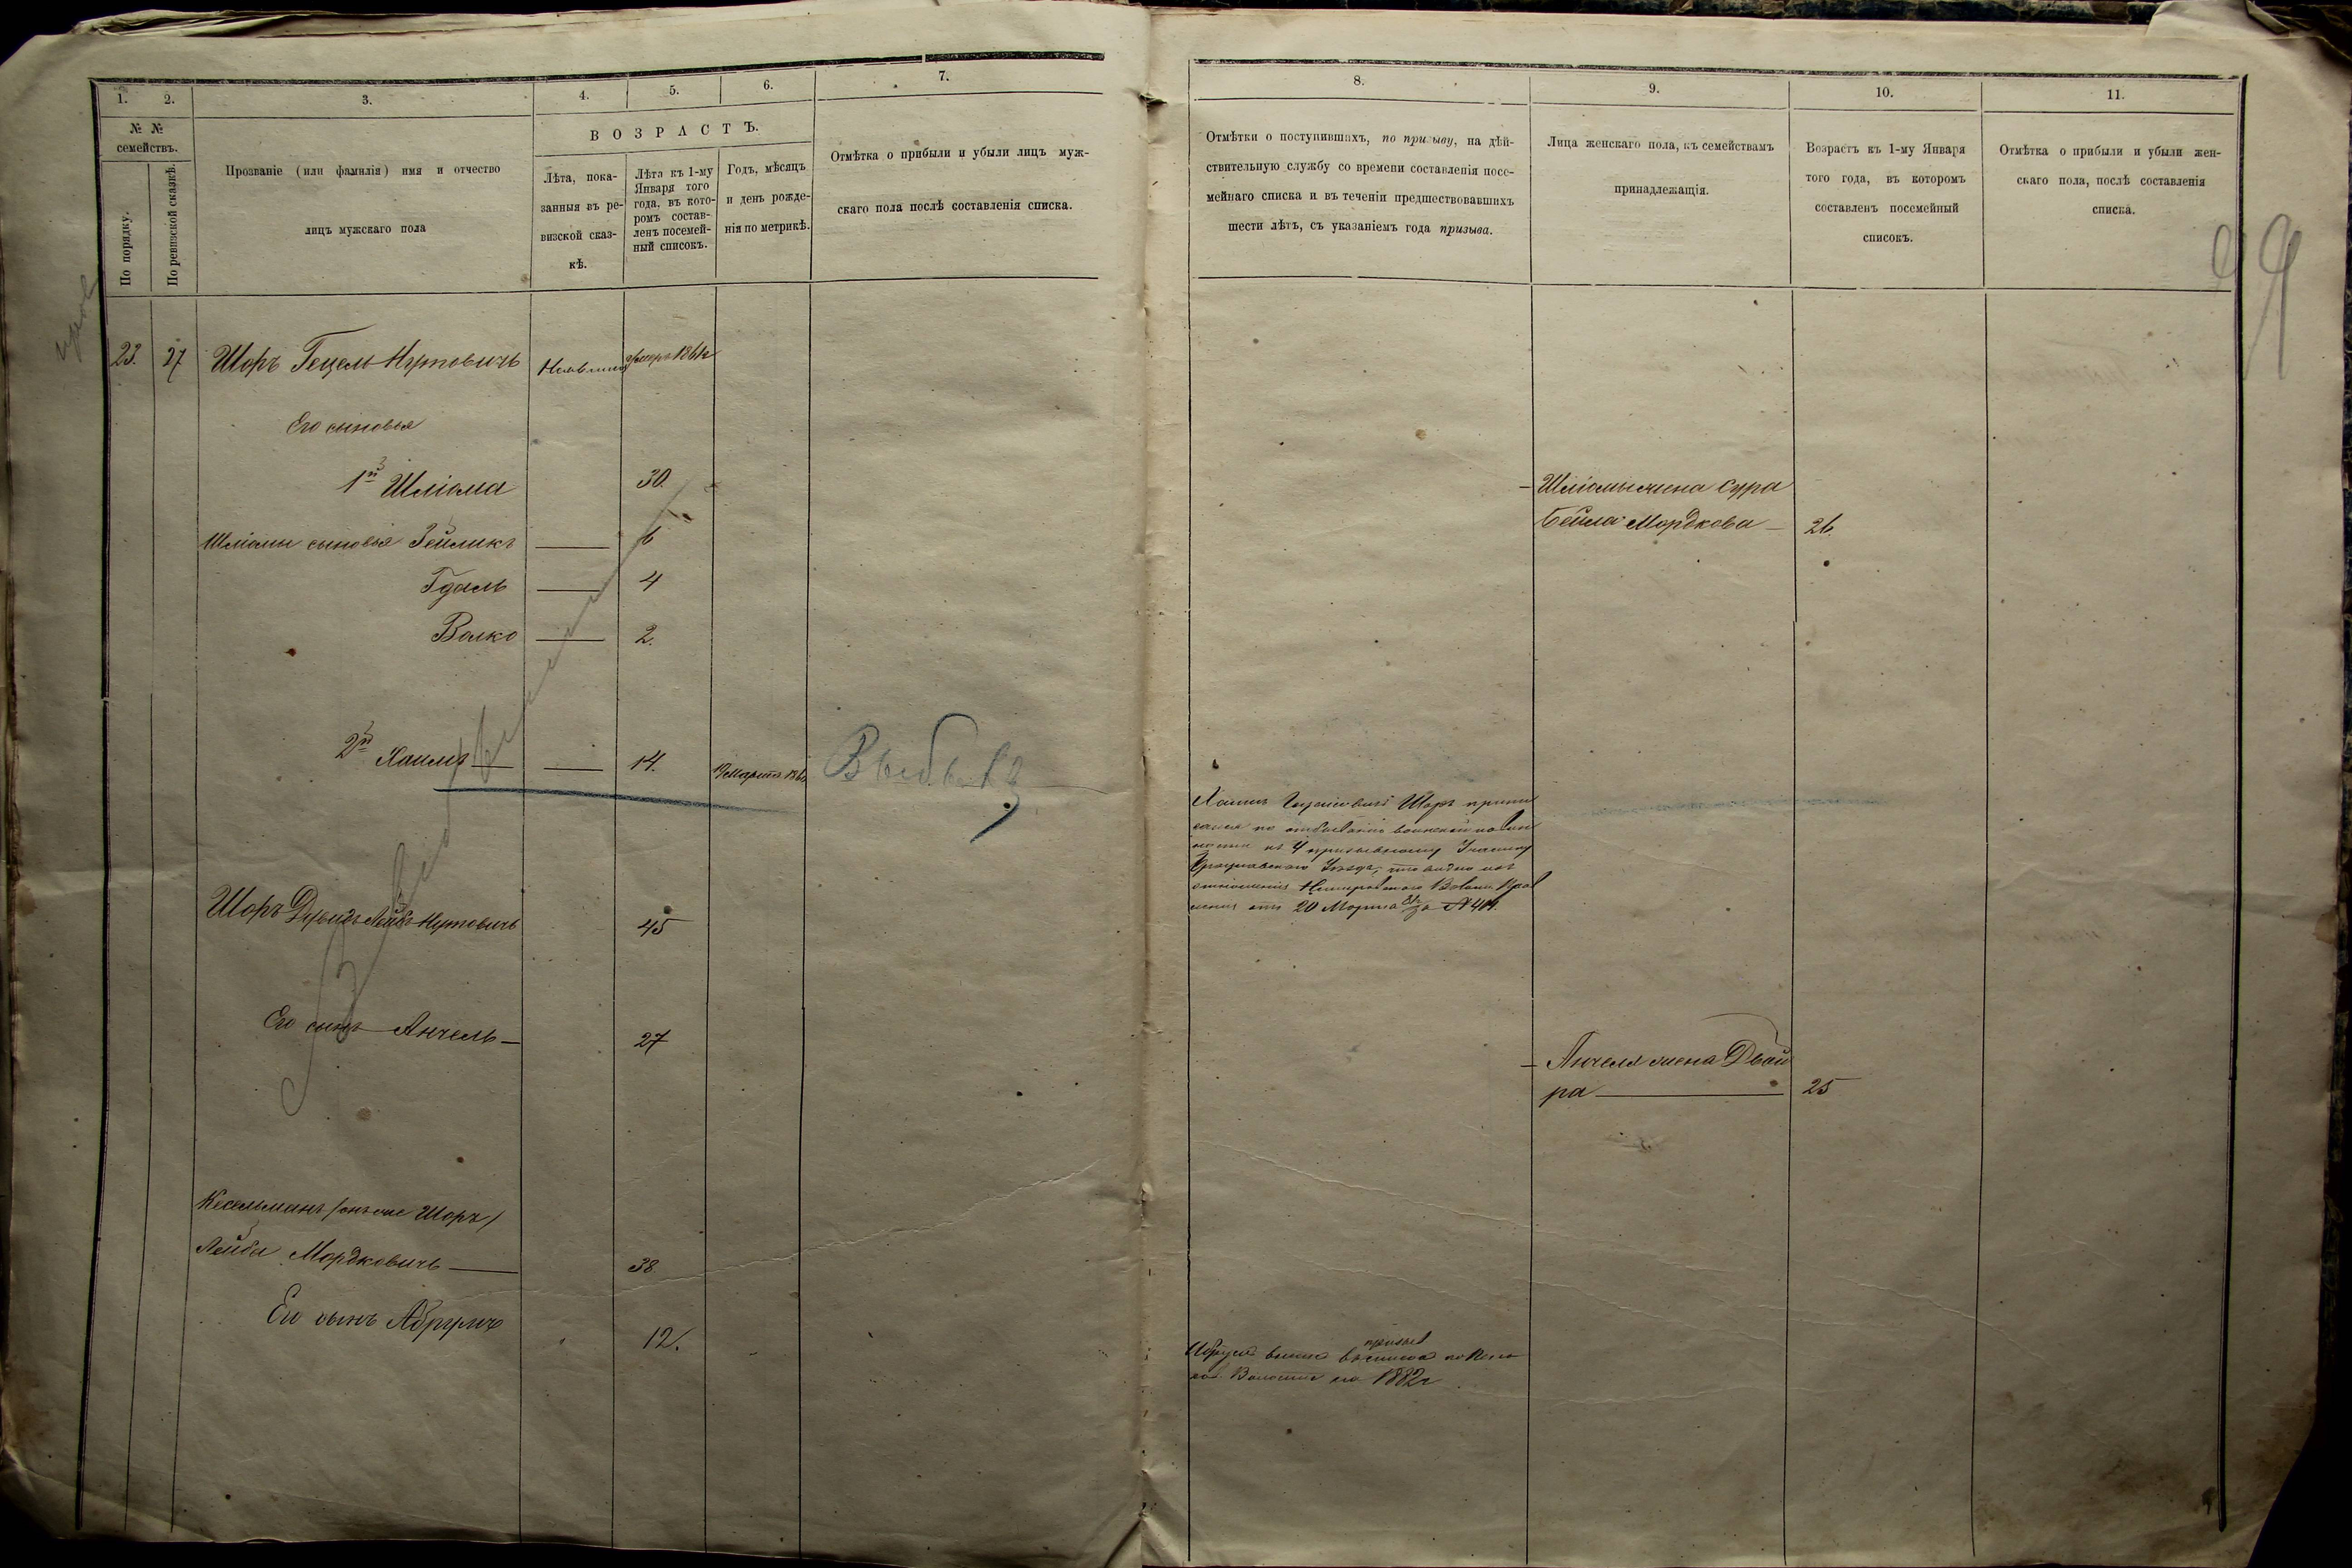 1.
2.
3.
4.
5.
6.
7.
№ №
семействъ.
По порядку.
По ревизской сказкѣ.
Прозваніе (или фамилія) имя и отчество
лицъ мужскаго пола
ВОЗРАСТЪ.
Лѣта, пока-
занныя въ ре-
визской сказ-
кѣ.
Лѣта къ 1-му
Января того
года, въ кото-
ромъ состав-
ленъ посемей-
ный списокъ.
Годъ, мѣсяцъ
и день рожде-
нія по метрикѣ.
Отмѣтка о прибыли и убыли лицъ муж-
скаго пола послѣ составленія списка.
23. 27 Шоръ Гецель Нутовичъ
Его сыновья
1й Шліома 30.
Шліомы сыновья Зейликъ 6
Гдаль 4
Волко 2.
2й Хаимъ 14. Марта
Выбылъ
Шоръ Лейбъ Нутовичъ 45
Его сынъ Анчель 27
Кесельманъ /онъ же Шоръ/
Лейба Мордковичъ 38
Его сынъ Абрумъ 12.
8.
9.
10.
11.
Отмѣтки о поступившихъ, по призыву, на дѣй-
ствительную службу со времени составленія посе-
мейнаго списка и въ теченіи предшествовавшихъ
шести лѣтъ, съ указаніемъ года призыва.
Лица женскаго пола, къ семействамъ
принадлежащія.
Возрастъ къ 1-му Января
того года, въ которомъ
составленъ посемейный
списокъ.
Отмѣтка о прибыли и убыли жен-
скаго пола, послѣ составленія
списка.
99
Шліомы жена Сура
Бейла Мордкова 26.
Хаимъ Шоръ припи
сался по отбыванію воинской повин
ности къ 4 призывному Участку
Брацлавскаго Уѣзда, что видно изъ
отношенія Немировскаго Волост. Прав
ленія отъ 20 Марта за №
Анчеля жена Двой
ра 25
призыв
на 1882г